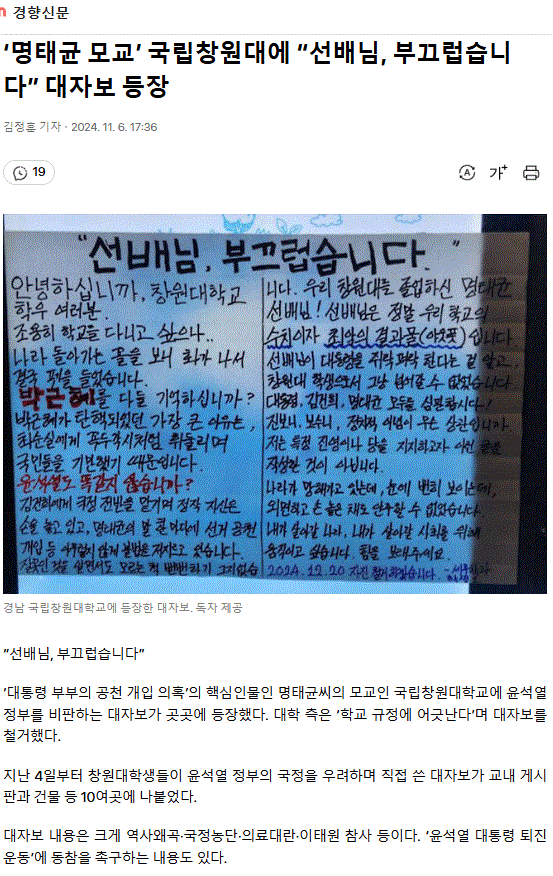 경향신문
‘명태균 모교’ 국립창원대에 “선배님, 부끄럽습니
다” 대자보 등장
김정훈 기자 · 2024. 11. 6. 17:36
19
가⁺
“선배님, 부끄럽습니다.”
안녕하십니까, 창원대학교
학우 여러분.
조용히 학교를 다니고 싶으나..
나라 돌아가는 꼴을 보니 화가 나서
결국 펜을 들었습니다.
박근혜를 다들 기억하십니까?
박근혜가 탄핵되었던 가장 큰 이유는,
최순실에게 꼭두각시처럼 휘둘리며
국민들을 기만했기 때문입니다.
윤석열도 똑같지 않습니까?
김건희에게 국정 전반을 맡기며 정작 자신은
손을 놓고 있고, 명태균의 말 한마디에 선거 공천
개입 등 불법을 저지르고 있습니다.
니다. 우리 창원대를 졸업하신 명태균
선배님! 선배님은 정말 우리 학교의
수치이자 최악의 결과물(아웃풋)입니다
선배님이 대통령을 쥐락펴락 한다는 걸 알고,
창원대 학생으로서 그냥 넘어갈 수 없었습니다
대통령, 김건희, 명태균 모두를 심판합시다!
진보니, 보수니, 정치적 이념이 무슨 상관입니까
저는 특정 진영이나 당을 지지하고자 이런 글을
작성한 것이 아닙니다.
나라가 망해가고 있는데, 눈에 뻔히 보이는데,
외면하고 손 놓은 채로 안주할 수 없었습니다.
내가 살아갈 나라, 내가 살아갈 사회를 위해
움직이고 싶습니다. 힘을 보태주세요.
2024.12.20 자진 철거하겠습니다.
경남 국립창원대학교에 등장한 대자보. 독자 제공
“선배님, 부끄럽습니다”
‘대통령 부부의 공천 개입 의혹’의 핵심인물인 명태균씨의 모교인 국립창원대학교에 윤석열
정부를 비판하는 대자보가 곳곳에 등장했다. 대학 측은 ‘학교 규정에 어긋난다’며 대자보를
철거했다.
지난 4일부터 창원대학생들이 윤석열 정부의 국정을 우려하며 직접 쓴 대자보가 교내 게시
판과 건물 등 10여곳에 나붙었다.
대자보 내용은 크게 역사왜곡·국정농단·의료대란·이태원 참사 등이다. ‘윤석열 대통령 퇴진
운동’에 동참을 촉구하는 내용도 있다.